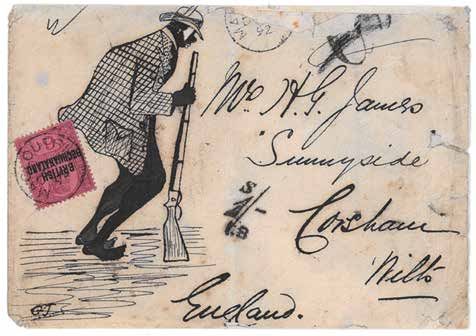 Mr H.G. James
"Sunnyside
Corsham
Wilts
England.
BRITISH
BECHUANALAND
S
1/-
G.J.